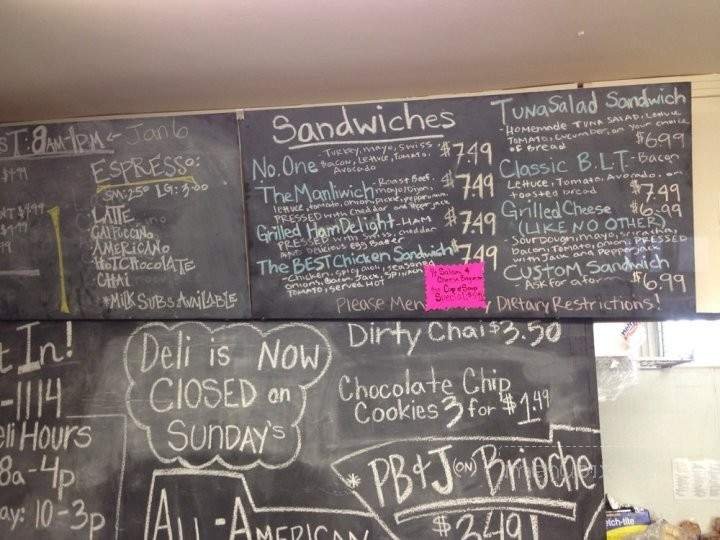 ST: 8AM-1PM ← Jan 6
ESPRESSO:
SM: 2.50 LG: 3.00
LATTE
CAPPUCCINO
AMERICANO
HOT CHOCOLATE
CHAI
*MILK SUBS AVAILABLE
Sandwiches
No. One Turkey, mayo, swiss $7.49
Bacon, Lettuce, Tomato,
Avocado
The Manliwich Roast Beef, $7.49
lettuce, tomato, onion, pickle, pepperoncini
PRESSED with cheddar and Pepper jack
Grilled Ham Delight-HAM $7.49
PRESSED with swiss, cheddar
AND Delicious egg Batter
The BEST Chicken Sandwich $7.49
-Chicken, spicy aioli, seasoned
onions, Bacon, Jack, spinach,
Tomato, served HOT
Tuna Salad Sandwich
-Homemade Tuna Salad, Lettuce
Tomato, Cucumber, on your choice
of Bread $6.99
Classic B.L.T-Bacon
Lettuce, Tomato, Avocado, on
toasted bread $7.49
Grilled Cheese $6.99
(LIKE NO OTHER)
-Sourdough, mayo, sriracha,
bacon, Tomato, onion, PRESSED
with Jack and Pepper jack
CUSTOM Sandwich
-Ask for a $6.99
Please Men
Dietary Restrictions!
t In!
-1114
eli Hours
8a-4p
ay: 10-3p
Deli is NOW
CLOSED on
SUNDAY'S
Dirty Chai $3.50
Chocolate Chip
Cookies 3 for $1.49
* PB&J (ON) Brioche
$3.49!
ALL-AMERICAN